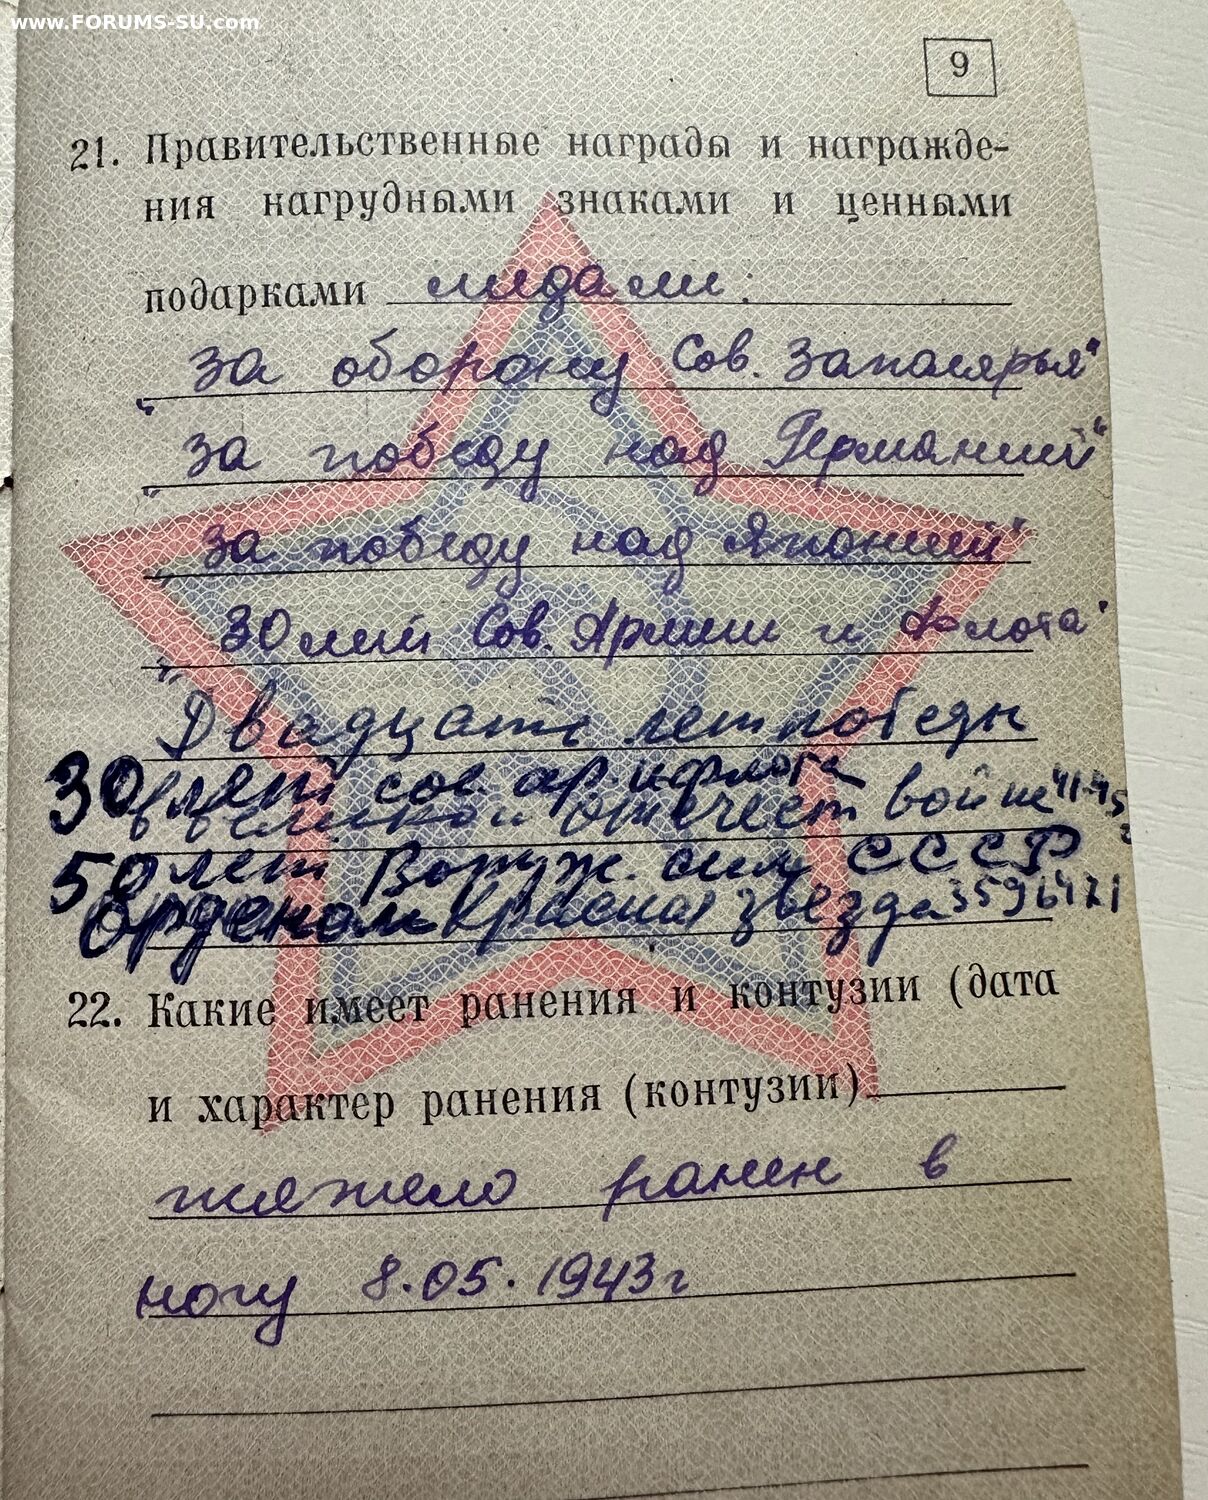 www.FORUMS-SU.com
9
21. Правительственные награды и награжде-
ния нагрудными знаками и ценными
подарками медали:
"За оборону Сов. Заполярья"
"За победу над Германией"
"За победу над Японией"
"30 лет Сов. Армии и Флота"
Двадцать лет победы
30 лет сов. ар. и флота
в великой отечест войне 41-45
50 лет Воруж. сил СССР
Орденом Красная звезда 3596471
22. Какие имеет ранения и контузии (дата
и характер ранения (контузии)
тяжело ранен в
ногу 8.05.1943г